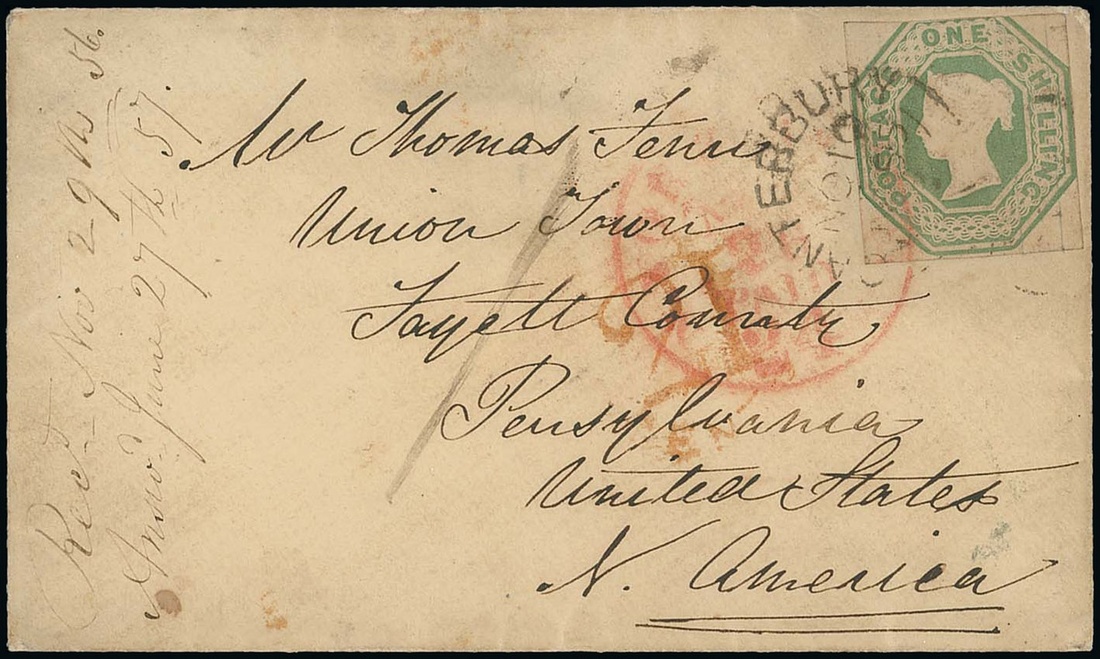 ONE SHILLING
POSTAGE
CANTERBURY
NO 10
Mr Thomas Fenn
Union Town
Fayett Counaty
Pensylvania
United States
N. America
PAID
Recd Nov 29th 56.
Answd June 27th 57